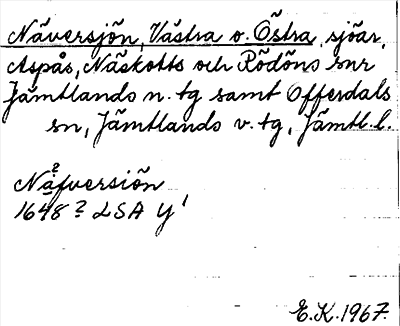 Näversjön, Västra o. Östra, sjöar,
Aspås, Näskotts och Rödöns snr
Jämtlands n. tg samt Offerdals
sn, Jämtlands v. tg, Jämtl. l.
Näfversiön
1648? LSA Y'
E.K. 1967.